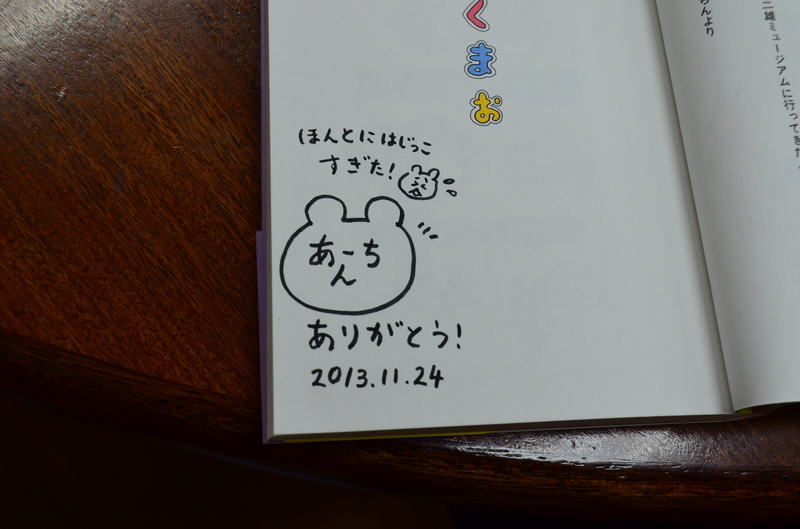 くまお
ほんとにはじっこ
すぎた!
あーち
ん
ありがとう!
2013.11.24
二雄ミュージアムに行ってきた
ちんより